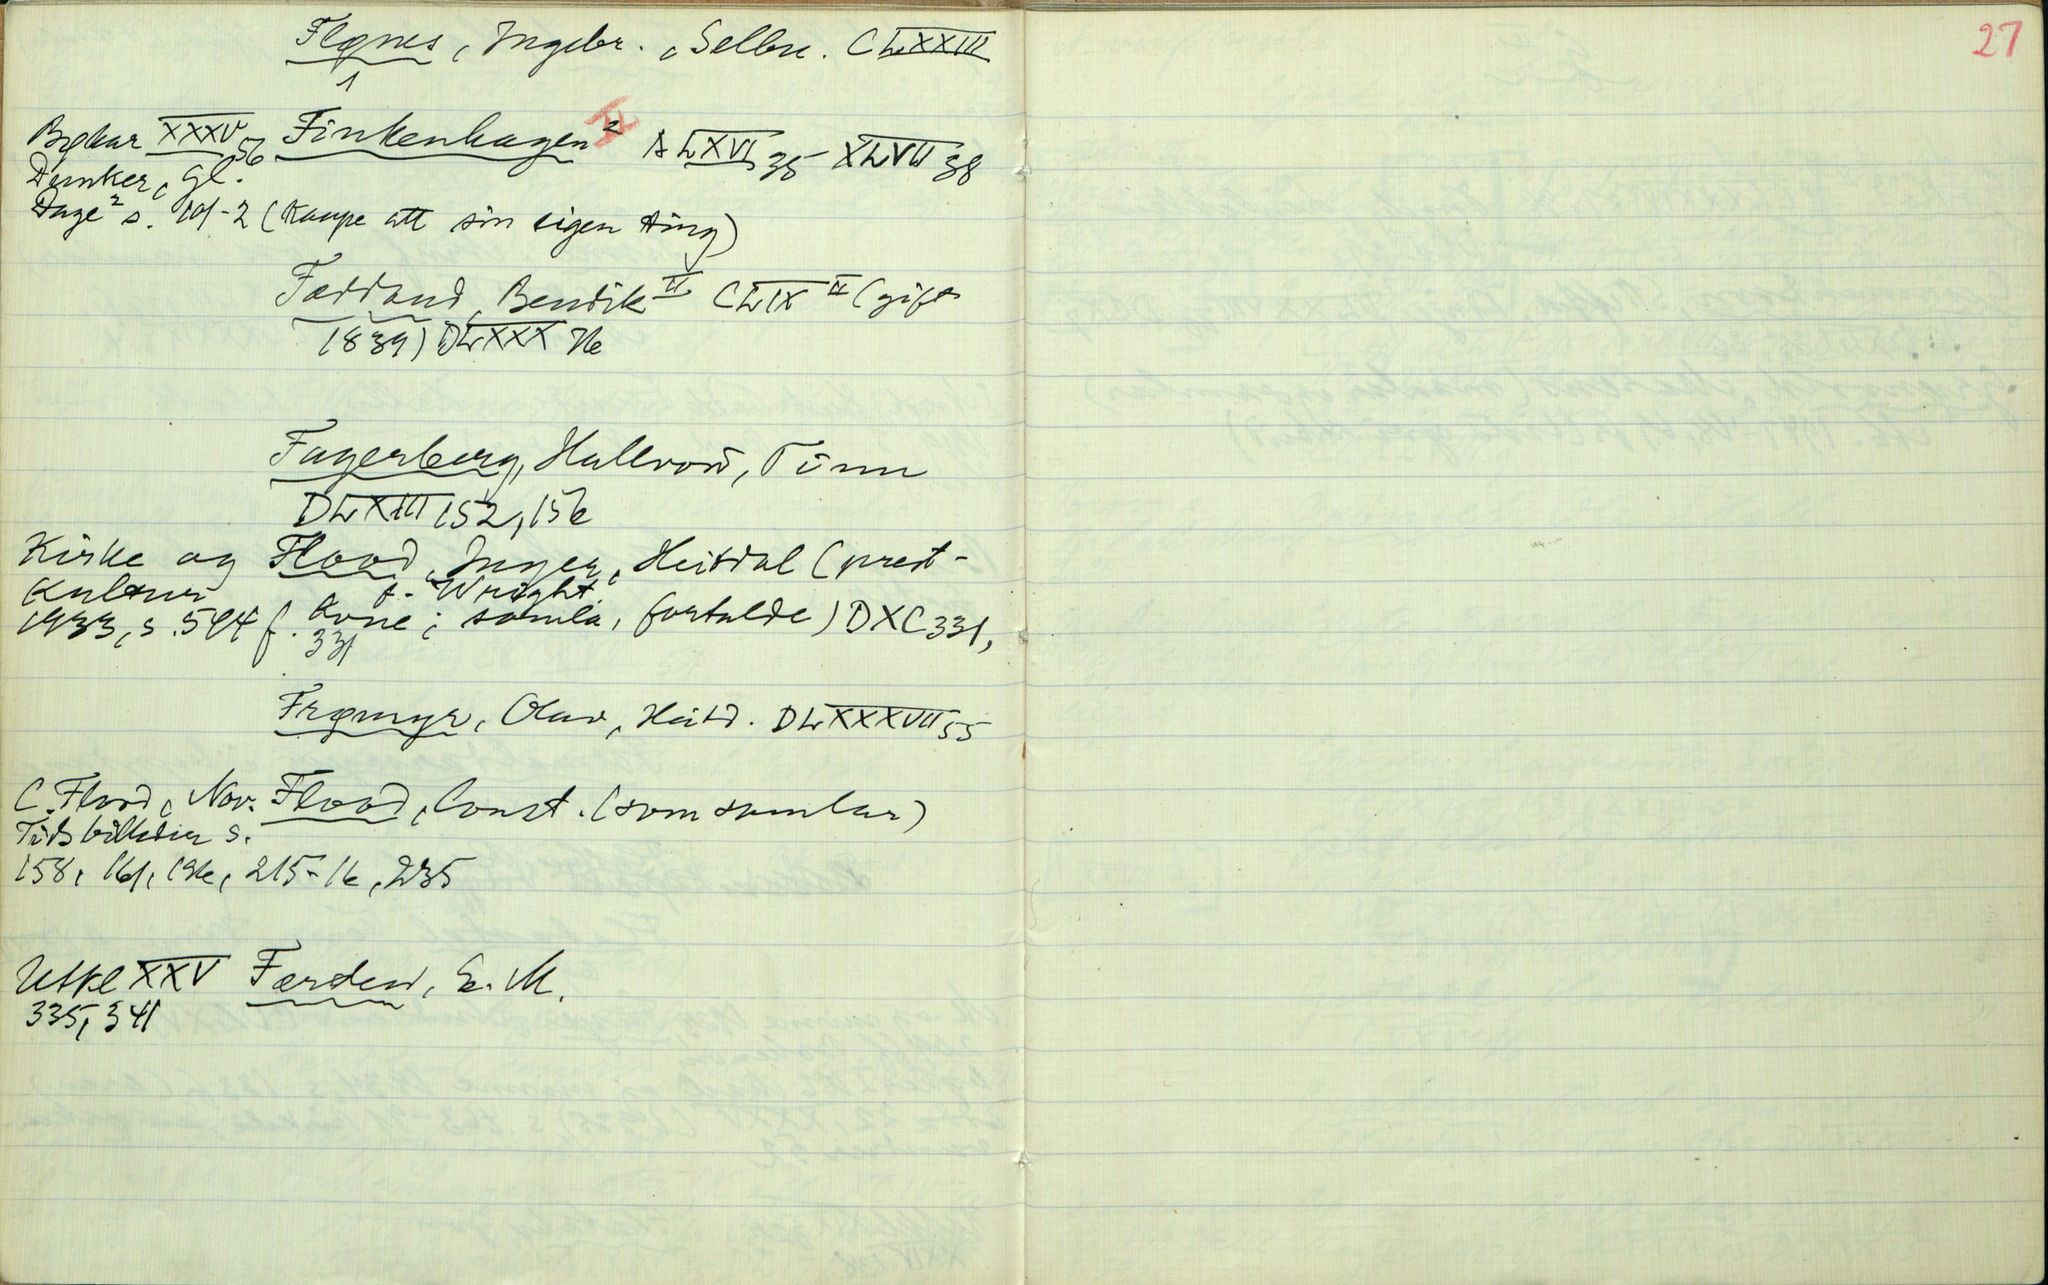 27
Flønes, Ingebr., Selbu. CLXXIII
1
Bøkar XXXV 56 Finkenhagen² II LXVI 35 XLVII 38
Dunker, Gl.
Dage² s. 101-2 (Kaupe att sin eigen ting)
Fadland, Bendik II CLIX II (gift
1839) DLXXX 76
Fagerberg, Hallvord, Tinn
DLXIII 152, 156
Kirke og Flood, Inger, Heitdal (prest-
Kultur f. Wright
1933, s. 594 f. kone; samla, fortalde) DXC 331,
331
Frømyr, Olav, Heitd. DLXXXVII 55
C. Flood, Nov. Flood, Const. (som samlar)
Tidsbilleder s.
158, 161, 196, 215-16, 235
Utkl XXV Færden, E. M.
335, 341